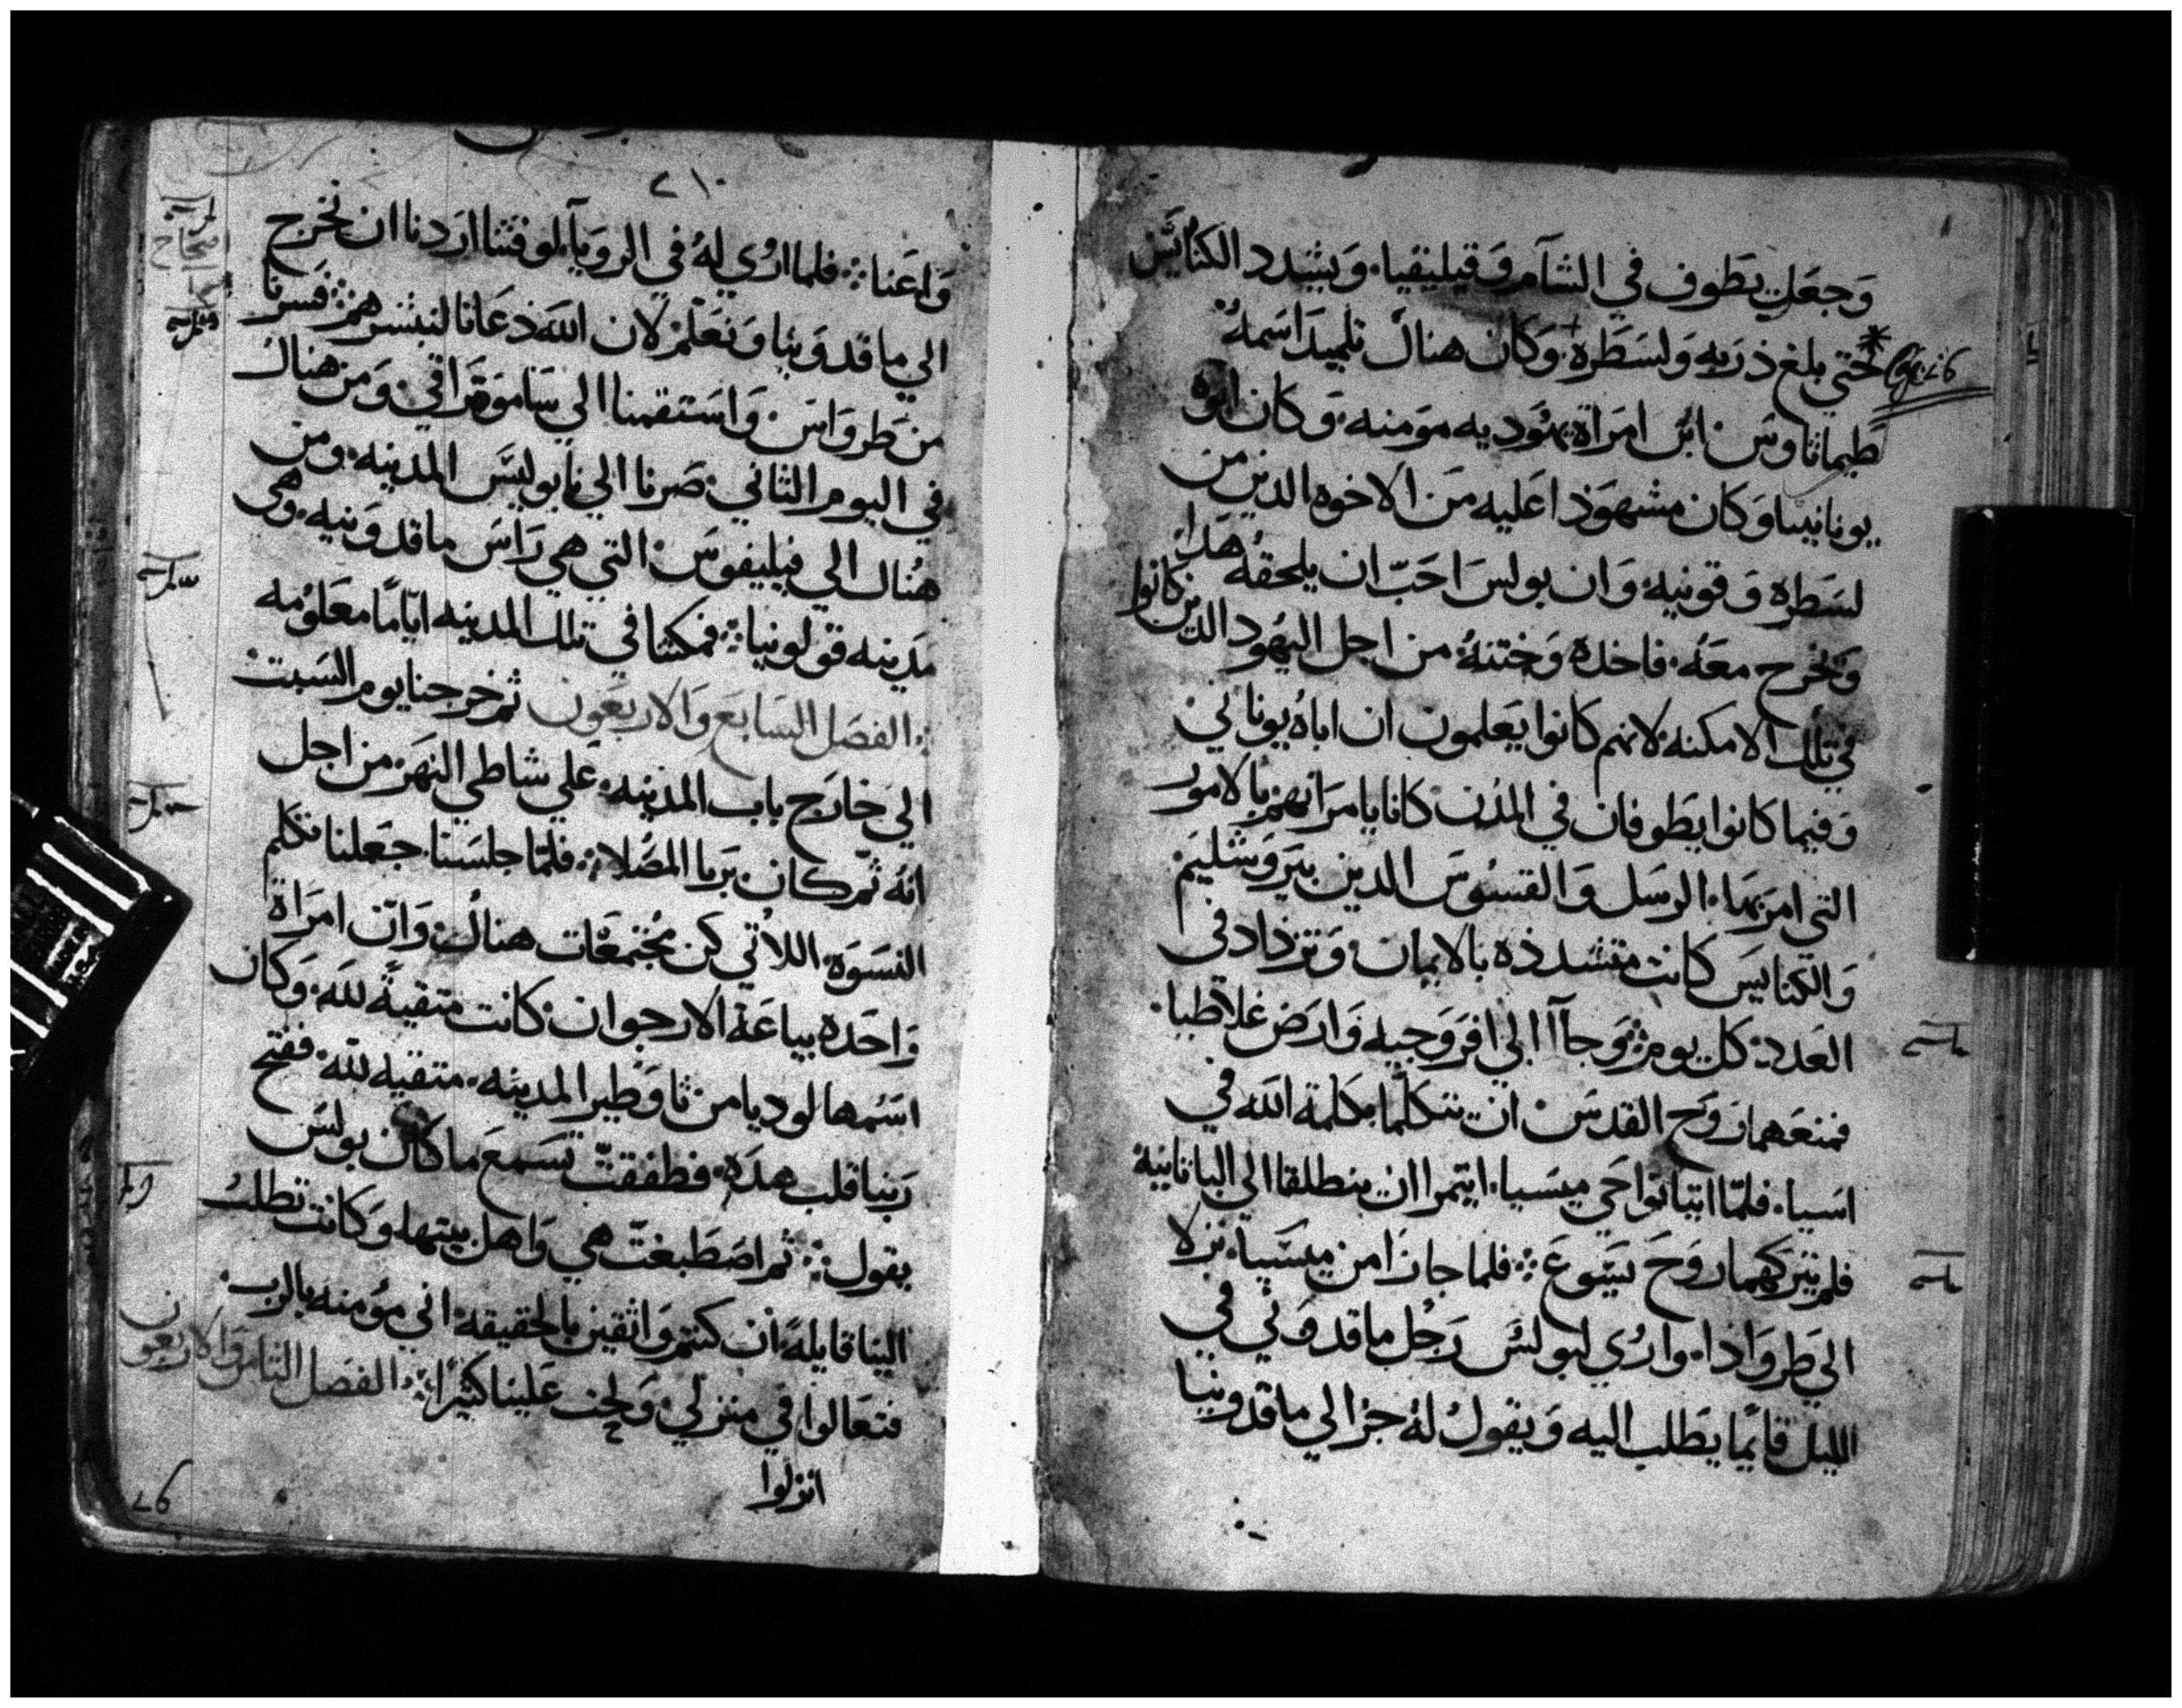 وَجعَل يطَوف في الشآم وَقيليقيا. وَيشدد الكنائيَس
حَتي بلغ ذربه وَلسَطَره. وَكان هناك تلميد اسَمهُ
Cap. 26
طيماثاوسَ. ابن امرَاة يهَودَيه مومنه. وَكان ابَوه
يونانييا وَكان مشهوَذا عَليه مَن الاخوه الدين من
لسَطره وَقونيه وَان بولسَ احَبّ ان يلحقهُ هَدا
وَيخرج معَه. فاخده وَختنهُ من اجل اليَهود الدين كانوا
في تلك الامكنه. لانهم كانوا يَعلمون ان اباهُ يوناني
وَفيما كانوا يطَوفان في المدُن كانا يامرَانهم بالامور
التي امرَ بهَا. الرسَل وَالقسوُسَ الدين بيَروَشليَم
وَالكنايسَ كانت متشدده بالايمان وَتزداد في
العَدد. كل يوم وَجاآ الي افروَجيه وَارَض غلاطيا.
فمنعَهما روَح القدسَ ان يتكلما بكلمة الله في
اسَيا. فلمّا اتيا نوَاحَي ميسَيا. ايتمرا ان ينطلقا الي الباثانيهُ
فلم يَتركهما روَحَ يسَوعَ. فلما جازا من ميسَيا. نزلا
الي طروَاذا. وارُي لبولسَ رَجُل ماقدوَني في
الليل قايمًا يطَلب اليه وَيقول لهُ جز الي ماقدونيا
٢١٠
وَاعَنا. فلما ارُي لهُ في الروَيآ. لوقتنا ارَدنا ان نخرج
الي ماقدوَنيا وَنعَلم لان اللهَ دعَانا لنبشرهم. فسَرنا
من طروَاسَ. وَاسَتقمنا الي سَاموَترَاقي. وَمن هناك
في اليوم الثاني. صَرنا الي نابوليسَ المدينه. ومن
هُناك الي فيليفوسَ. التي هي رَاسَ ماقدوَنيه. وهي
مَدينه قولونيا. فمكثنا في تلك المدينه ايّامًا معَلوُمه
الفصَل السَابعَ وَالاربعَون ثم خرجنا يوم السَبت
الي خارَج باب المدينه. عَلي شاطي النهَر. من اجل
انهُ ثمّ كان يرَما المصَلا. فلمّا جلسَنا جعَلنا نتكلم
النسَوَة. اللاُتي كن مُجتمعَات هناك. وَانّ امرَاة
وَاحَده بياعَة الارجوان. كانت متقيةً لله. وَكان
اسَمها لوديا من ثاوَطيرا المدينه. متقيه لله. ففتح
رَبنا قلب هَدَه. فطفقتّ تسَمعَ ما كان بولسَ
يقول. ثم اصَطبغتّ هي وَاهل بيتها. وَكانت تطلب
الينا قايلهً ان كنتم وَاثقين بالحَقيقه. اني موُمنه بالرب.
فتعَالوا في منزلي. وَلحت عَلينا كثيرًا. الفصَل الثامن وَالاربعون
انزلوا
26